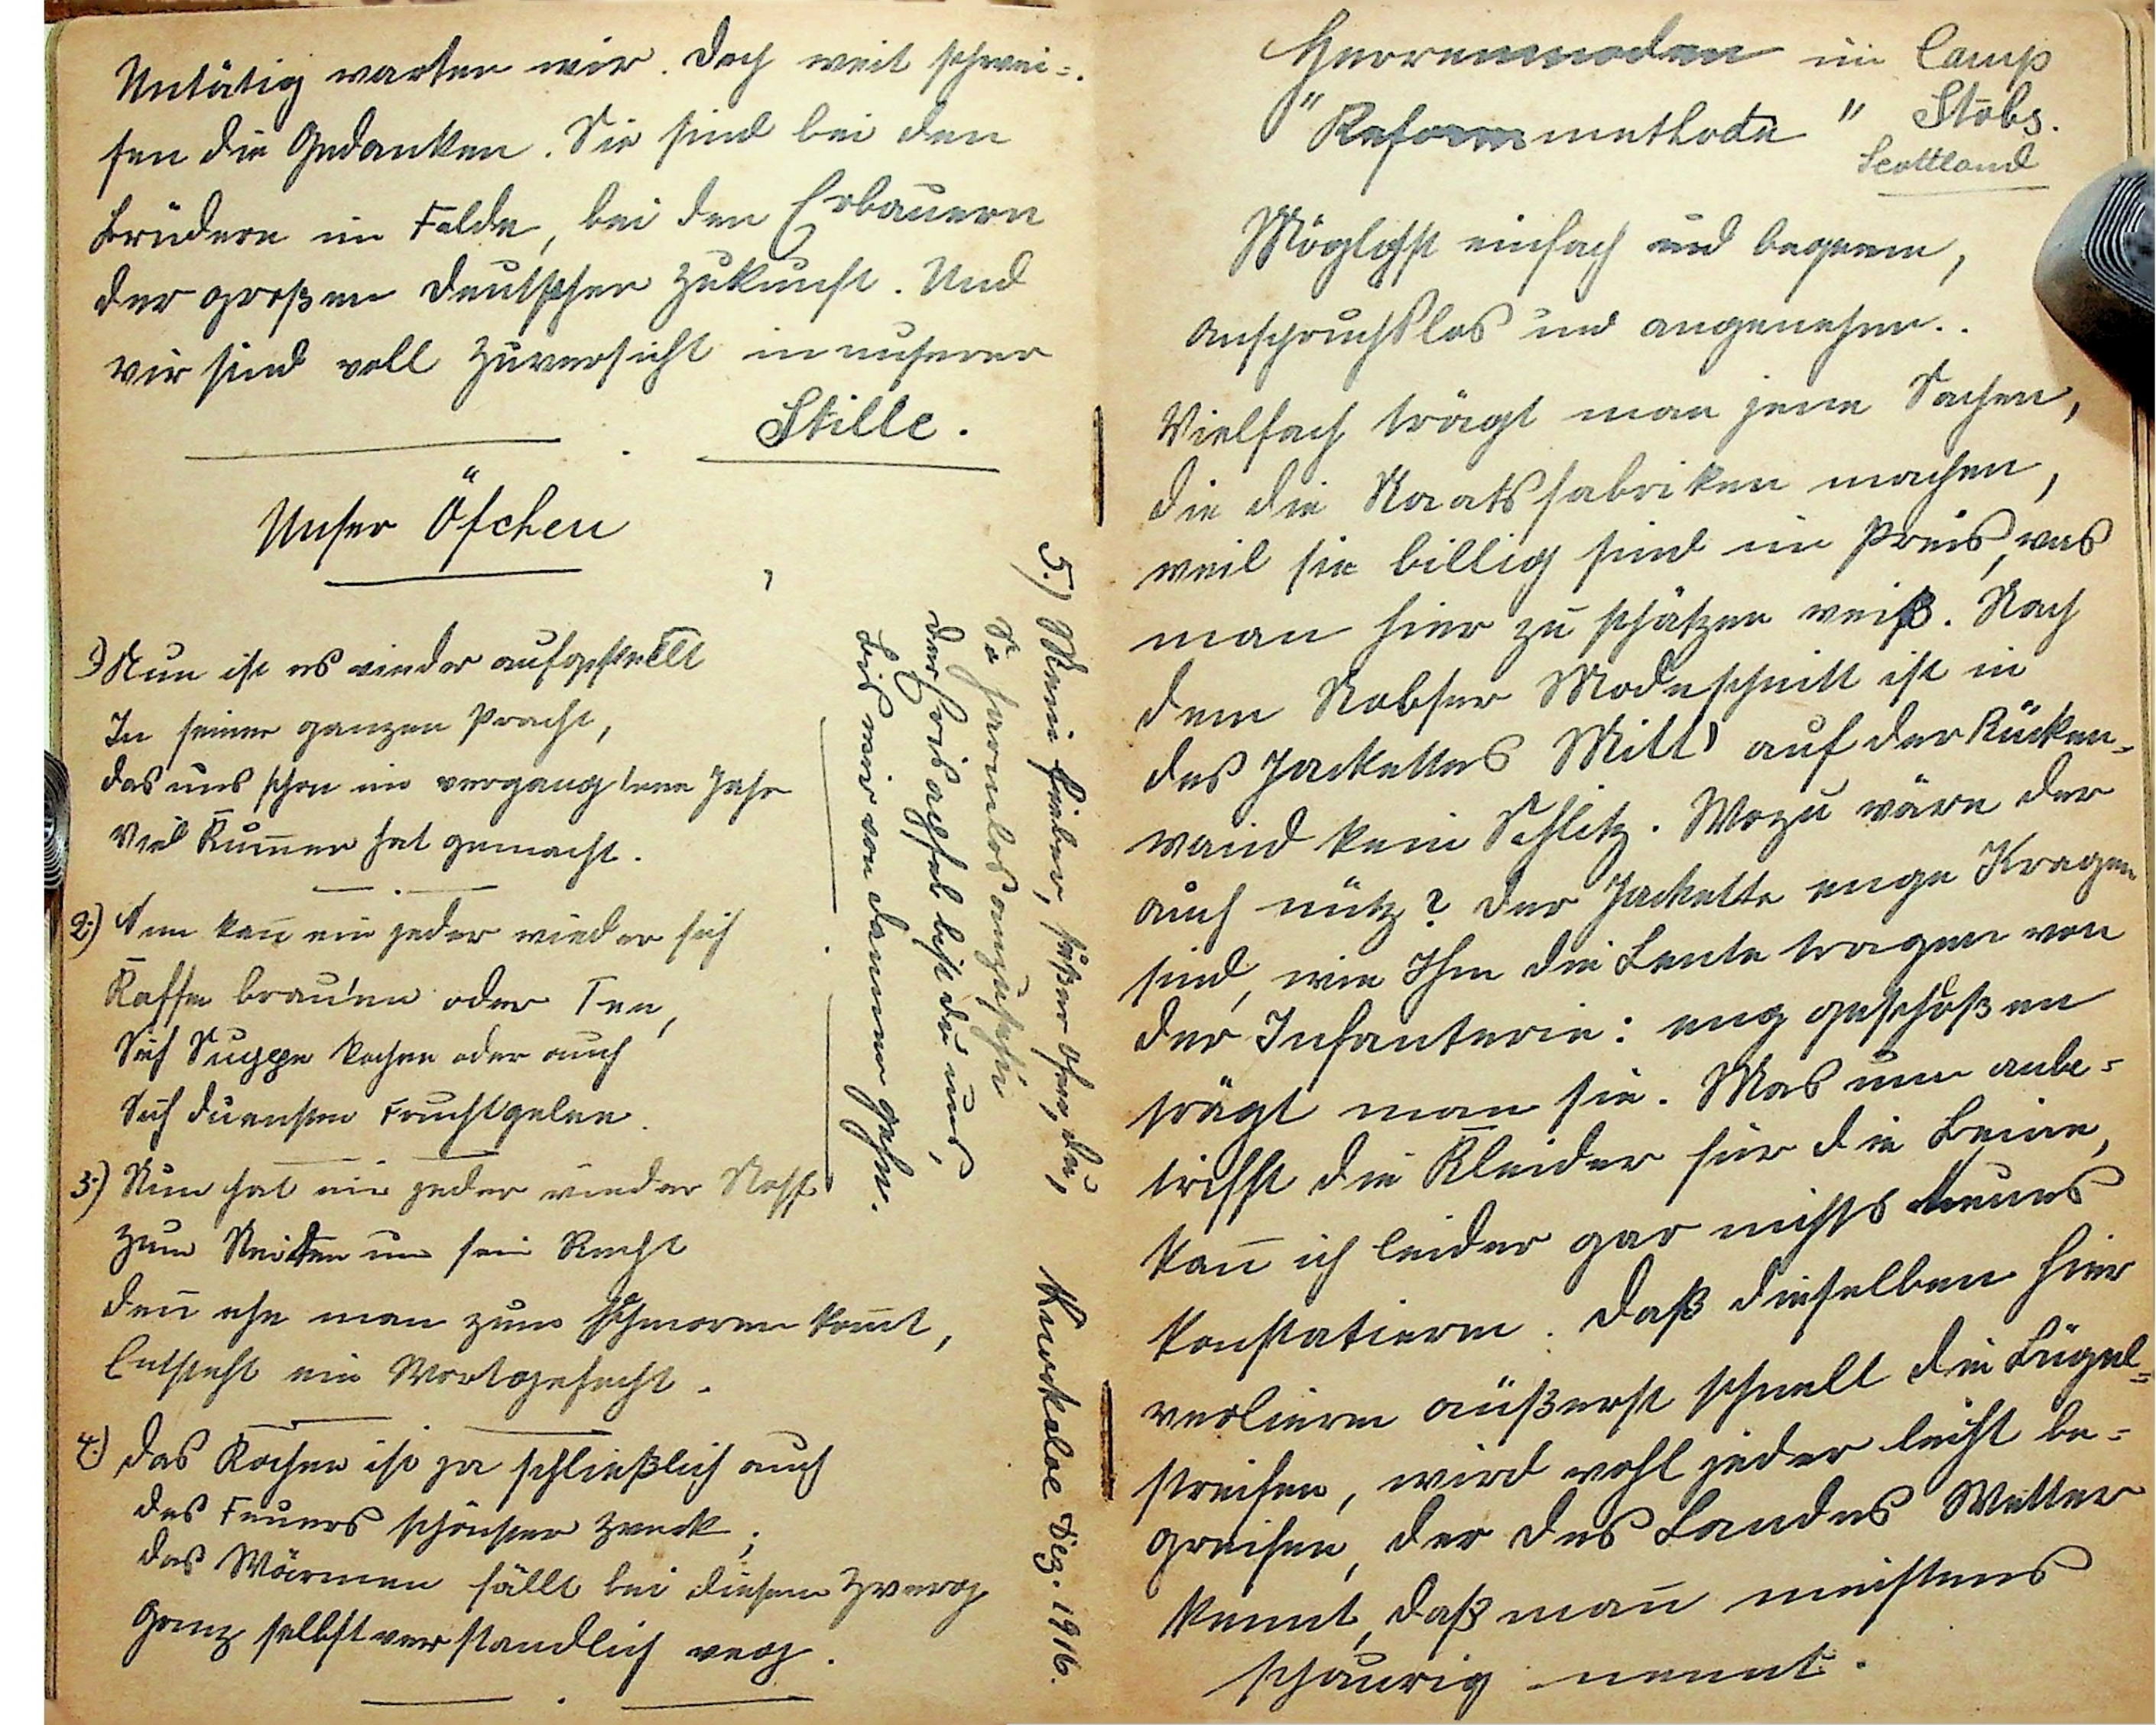 Untätig warten wir. Doch weit schwei-
fen die Gedanken. Sie sind bei den
Brüdern im Felde, bei den Erbauern
der großen deutschen Zukunft. Und
wir sind voll Zuversicht in unserer
Stille.
Unser Öfchen
1) Nun ist es wieder aufgestellt
In seiner ganzen Pracht,
das uns schon im vergangenen Jahr
Viel Kum̄er hat gemacht.
2.) Nun kan̄ ein jeder wieder sich
Kaffee brauen oder Tee,
Sich Suppe kochen oder auch
Sich duensten Fruchtgelee.
3.) Nun hat ein jeder wieder Stoff
zum Streiten um sein Recht
den̄ ehe man zum schmoren kom̄t,
Entsteht ein Wortgefecht.
4.) das Kochen ist ja schließlich auch
des Feuers schönster Zweck;
das Wärmen fällt bei diesem Zwerg
Ganz selbstverständlich weg.
5.) Mein lieber, süßer Ofen, du,
So harmlos anzusehn
der Erisapfel bist du uns,
bis wir von dannen gehn.
Knockaloe Dez. 1916.
Herrenmoden im Camp
"Reformmethode" Stobs.
Scottland
Möglichst einfach und bequem,
anspruchslos und angenehm..
Vielfach trägt man jene Sachen,
die die Staatsfabriken machen,
weil sie billig sind im Preis, was
man hier zu schätzen weiß. Nach
dem Stobser Modeschnitt ist in
des Jackettes Mitt' auf der Rücken-
wand kein Schlitz. Wozu wäre der
auch nütz? der Jackette enge Kragen
sind, wie Ihm die Leute tragen von
der Infanterie: eng geschloßen
trägt man sie. Was nun anbe-
trifft die Kleider für die Beine,
kan̄ ich leider gar nichts neues
konstatieren. Daß dieselben hier
verlieren äußerst schnell die Bügel-
streifen, wird wohl jeder leicht be-
greifen, der des Landes Wetter
kennt, daß man̄ meistens
schaurig nennt.